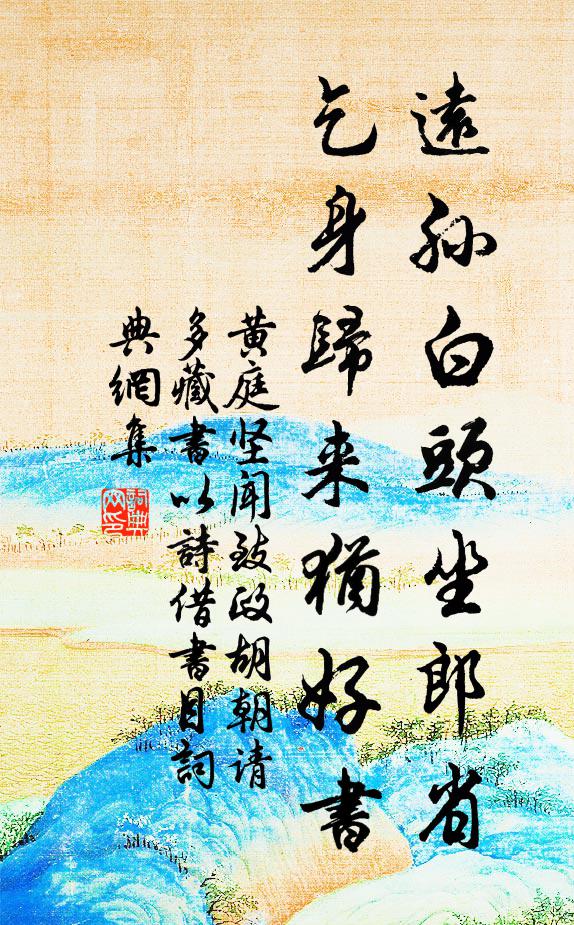 遠孙白頭坐郎省
乞身歸来猶好書
黄庭坚闻致政胡朝请
多藏書以詩借書目詞
典網集
詞典